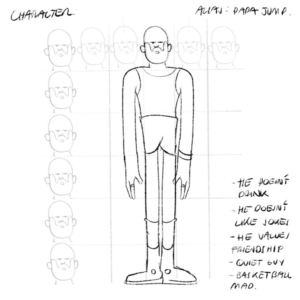 CHARACTER
ALIAS: PAPA JUMP.
- HE DOESN'T
DRINK
- HE DOESN'T
LIKE JOKES
- HE VALUES
FRIENDSHIP
- QUIET GUY
- BASKETBALL
MAD.